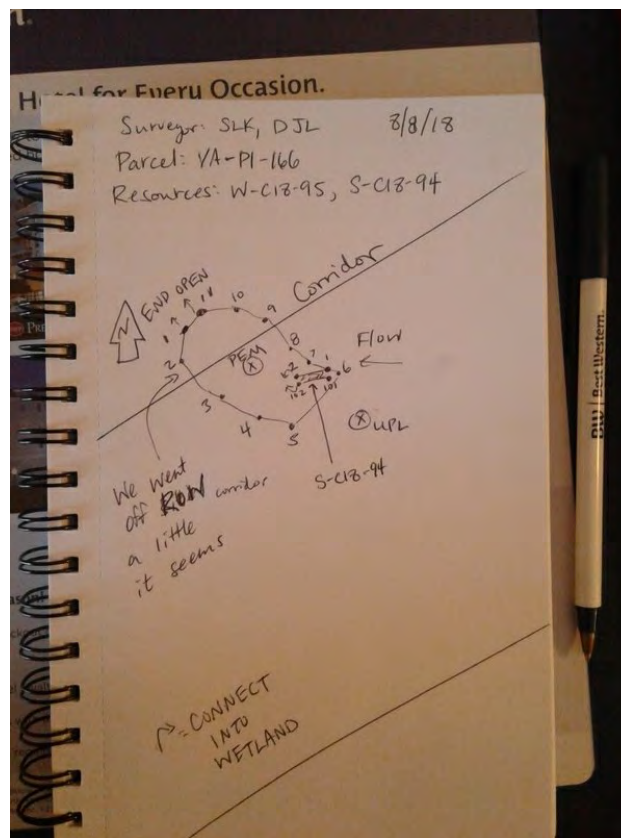 Hotel for Every Occasion.
Surveyor: SLK, DJL 8/8/18
Parcel: VA-PI-166
Resources: W-C18-95, S-C18-94
Corridor
END OPEN
N
11
10
9
1
8
Flow
PEM
X
7
2
1
6
2
102
101
3
4
5
X UPL
S-C18-94
We went
off ROW corridor
a little
it seems
= CONNECT
INTO
WETLAND
BW | Best Western.